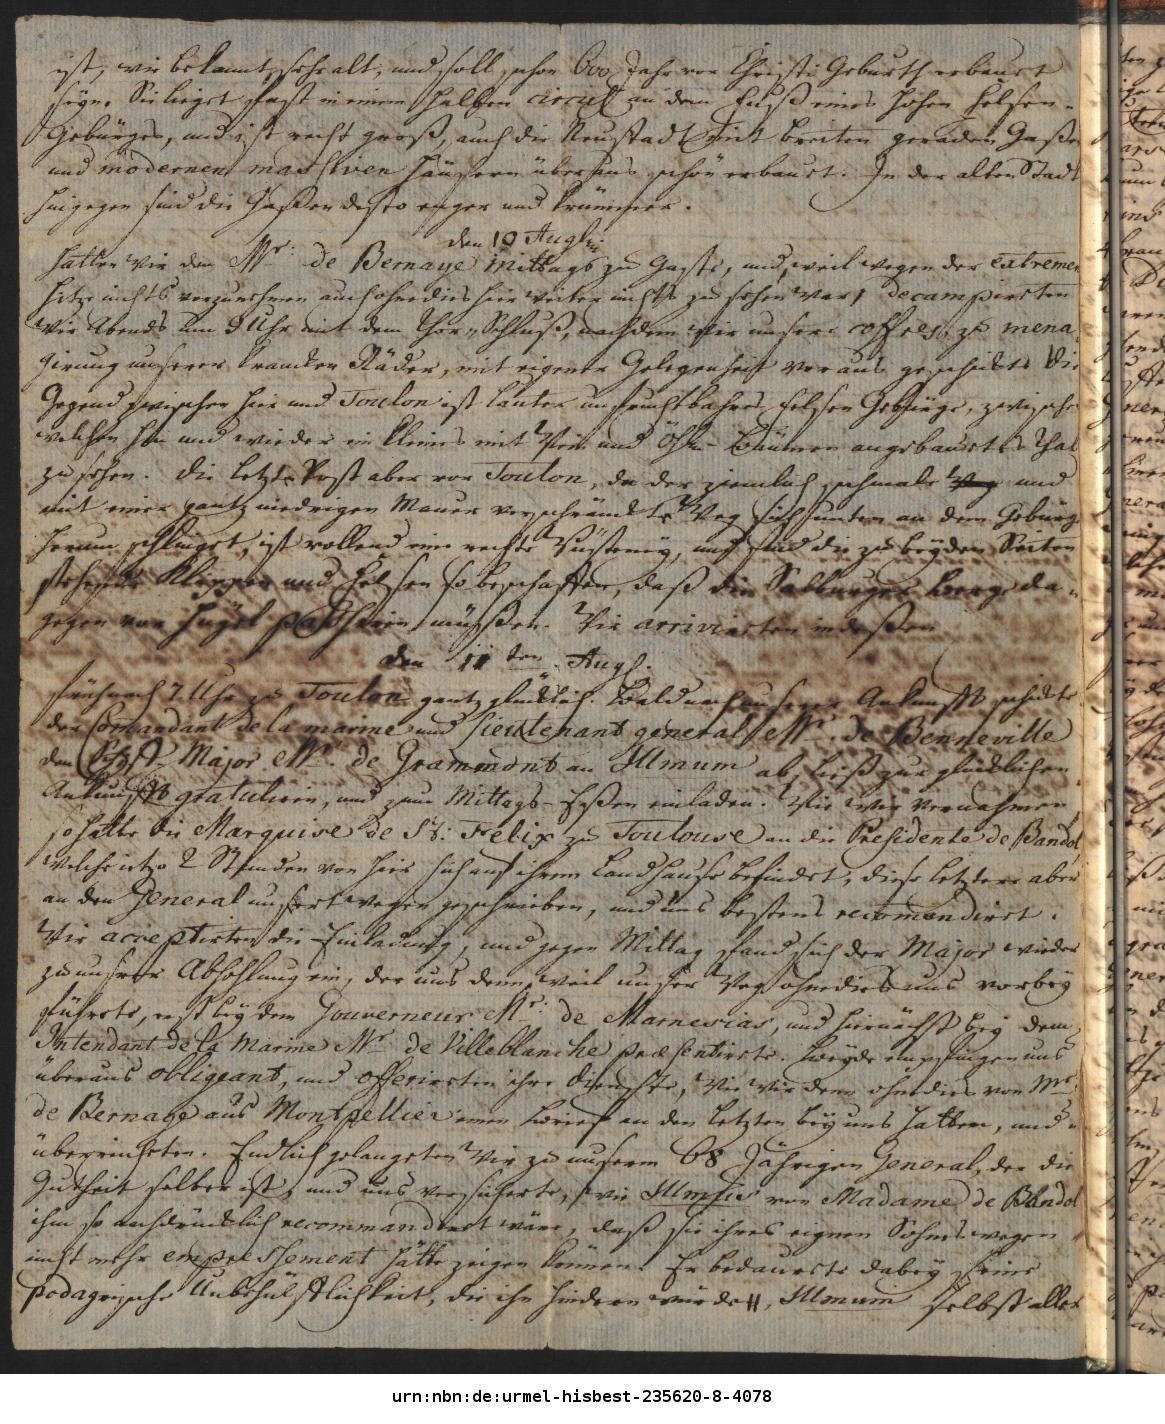 ist, wie bekannt, sehr alt, und soll schon 600 Jahr vor Christi Geburth erbauet
seyn. Sie lieget fast in einem halben circul an dem Fuß eines hohen Felsen-
Gebürges, und ist recht groß, auch die Neustadt mit breiten geraden Gaßen
und modernen massiven Häusern überaus schön erbauet. In der alten Stadt
hingegen sind die Gaßen desto enger und krümmer.
den 10 Augl:
hatten wir den Mr: de Bernage mittags zu Gaste, und weil wegen der extremen
Hitze nichts vorzunehmen auch ohnedies hier weiter nichts zu sehen war, decampierten
Wir Abends um 8 Uhr mit dem Thor-Schluß, nachdem wir unsere coffres, zu mena
girung unserer krancken Räder, mit eigener Gelegenheit voraus geschickt. Die
Gegend zwischen hier und Toulon ist lauter unfruchtbahres Felsen Gebürge, zwischen
welchen hin und wieder ein kleines mit Wein und Öhl-Bäumen angebautes Thal
zu sehen. Die letzte Post aber vor Toulon, da der ziemlich schmale und
mit einer gantz niedrigen Mauer verschränckte Weg sich unten an dem Gebürge
herum schlinget, ist vollend eine rechte Wüsteney, und sind die zu beyden Seiten
stehende Klippen und Felsen so beschaffen, daß die Saltzburger Berge da-
gegen vor Hügel passiren müssen. Wir arrivierten indeßen
den 11ten Augl.
früh nach 7. Uhr zu Toulon gantz glücklich. Bald nach unserer Ankunfft schickte
der Comandant de la marine und Lieutenant general Mr. de Benneville
den Major Mr. de Grammont an Illmum ab, ließ zur glücklichen
Ankunfft gratuliren, und zum Mittags-Eßen einladen. Wie wir vernahmen,
so hatte die Marquise de St: Felix zu Toulouse an die Presidente de Bandol,
welche itzo 2 Stunden von hier sich auf ihrem Landhause befindet, diese letztere aber
an den General unsertwegen geschrieben, und uns bestens recomendiret.
Wir acceptirten die Einladung, und gegen Mittag fand sich der Major wieder
zu unserer Abhohlung ein, der uns denn, weil unser Weg ohnedies uns vorbey
führete, erst bey dem Gouverneur Mr: de Marnesias, und hiernächst bey dem
Intendant de la Marine Mr. de Villeblanche præsentirte. Beyde empfingen uns
überaus obligeant, und offerirten ihre Dienste, Wie wir denn ohnedies von Mr:
de Bernage aus Montpellier einen Brief an den letzten bey uns hatten, und
überreichten. Endlich gelangten Wir zu unserm 68 Jährigen General, der die
Gutheit selber ist, und uns versicherte, wie Illmus von Madame de Bandol
ihm so nachdrücklich recommandiret wäre, daß sie ihres eignen Sohnes wegen
nicht mehr empressement hätte zeigen können. Er bedauerte dabey seine
podagrische Unbehülfflichkeit, die ihn hindern würde, Illmum selbst aller